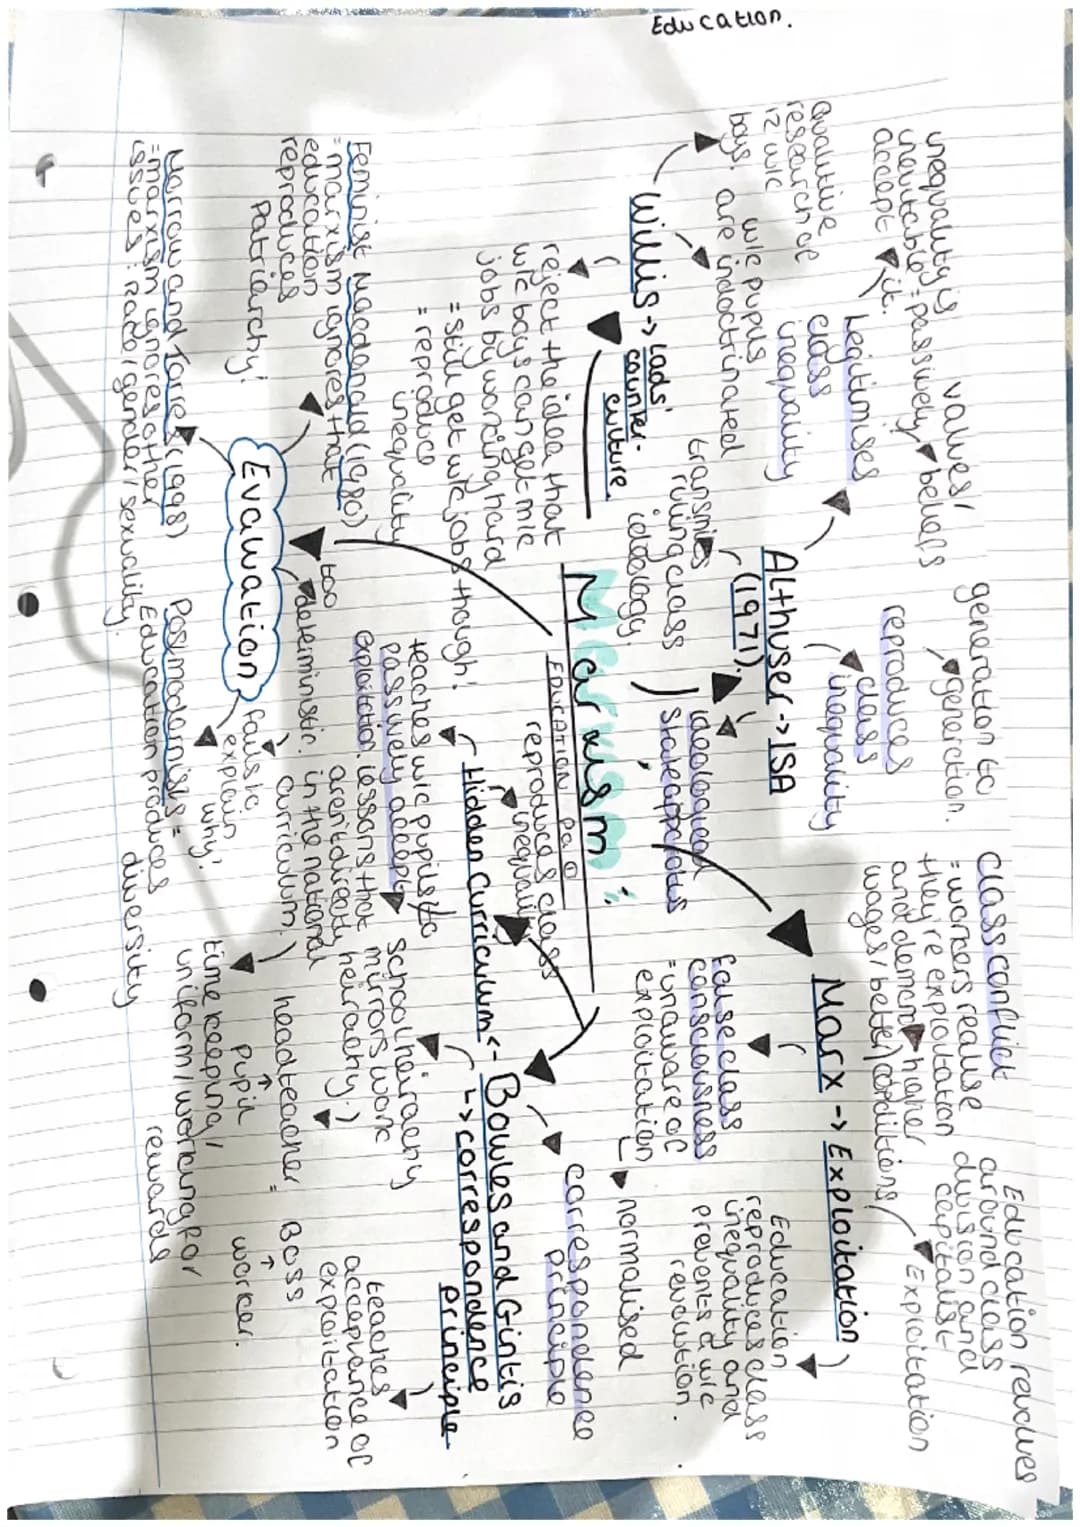 Education.
Marxism:
EDUCATION P a O
Althuser -> ISA
(1971).
idealogical
state apparatus
transmits
ruling class
idealogy.
Legitimises
class
inequality
values/
beliefs
inequality is
inevitable = passively
accept it.
reproduces
class
inequality
generation to
generaction.
Marx -> Exploitation
class conflict
= workers realise
they're exploitation
and demand higher
wages/better/conditions
Education revolves
around class
division and
capitalist
Exploitation
false class
consciousness
= unaware of
exploitation
normalised
Education
reproduces class
inequality and
prevents a w/c
revolution.
Bowles and Gintis
-> correspondence
principle
correspondence
principle
Hidden curriculum <-
reproduces class
inequality
teaches w/c pupils to
passively accept
exploitation. lessons that
aren't directly
in the national
curriculum.
school heirarchy
mirrors work
heirarchy.
headteacher = Boss
↑ ↑
Pupil worker.
time keeping/
uniform/working for
rewards
teaches
acceptance of
exploitation
Willis -> Lads'
counter-
culture.
qualitive
research of
12 w/c
boys.
w/c pupils
are indoctrinated
reject the idea that
w/c boys can get m/c
jobs by working hard
= still get w/c jobs though!
= reproduce
inequality
Evaluation
Feminist Macdonald (1980)
= marxism ignores that
education
reproduces
Patriarchy!
Morrow and Torres (1998)
= marxism ignores other
issues: Race/gender/sexuality.
too
deterministic.
fails to
explain
why!
Postmodernists =
Education produces
diversity